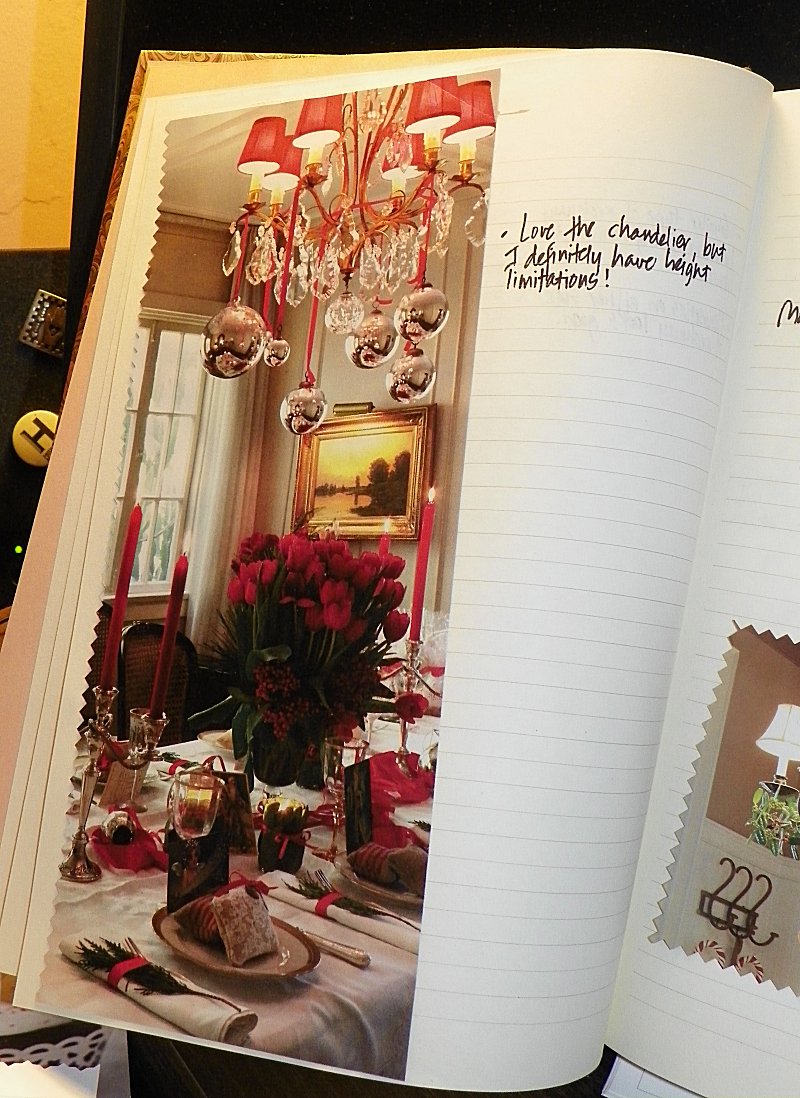 • Love the chandelier, but
I definitely have height
limitations!
H